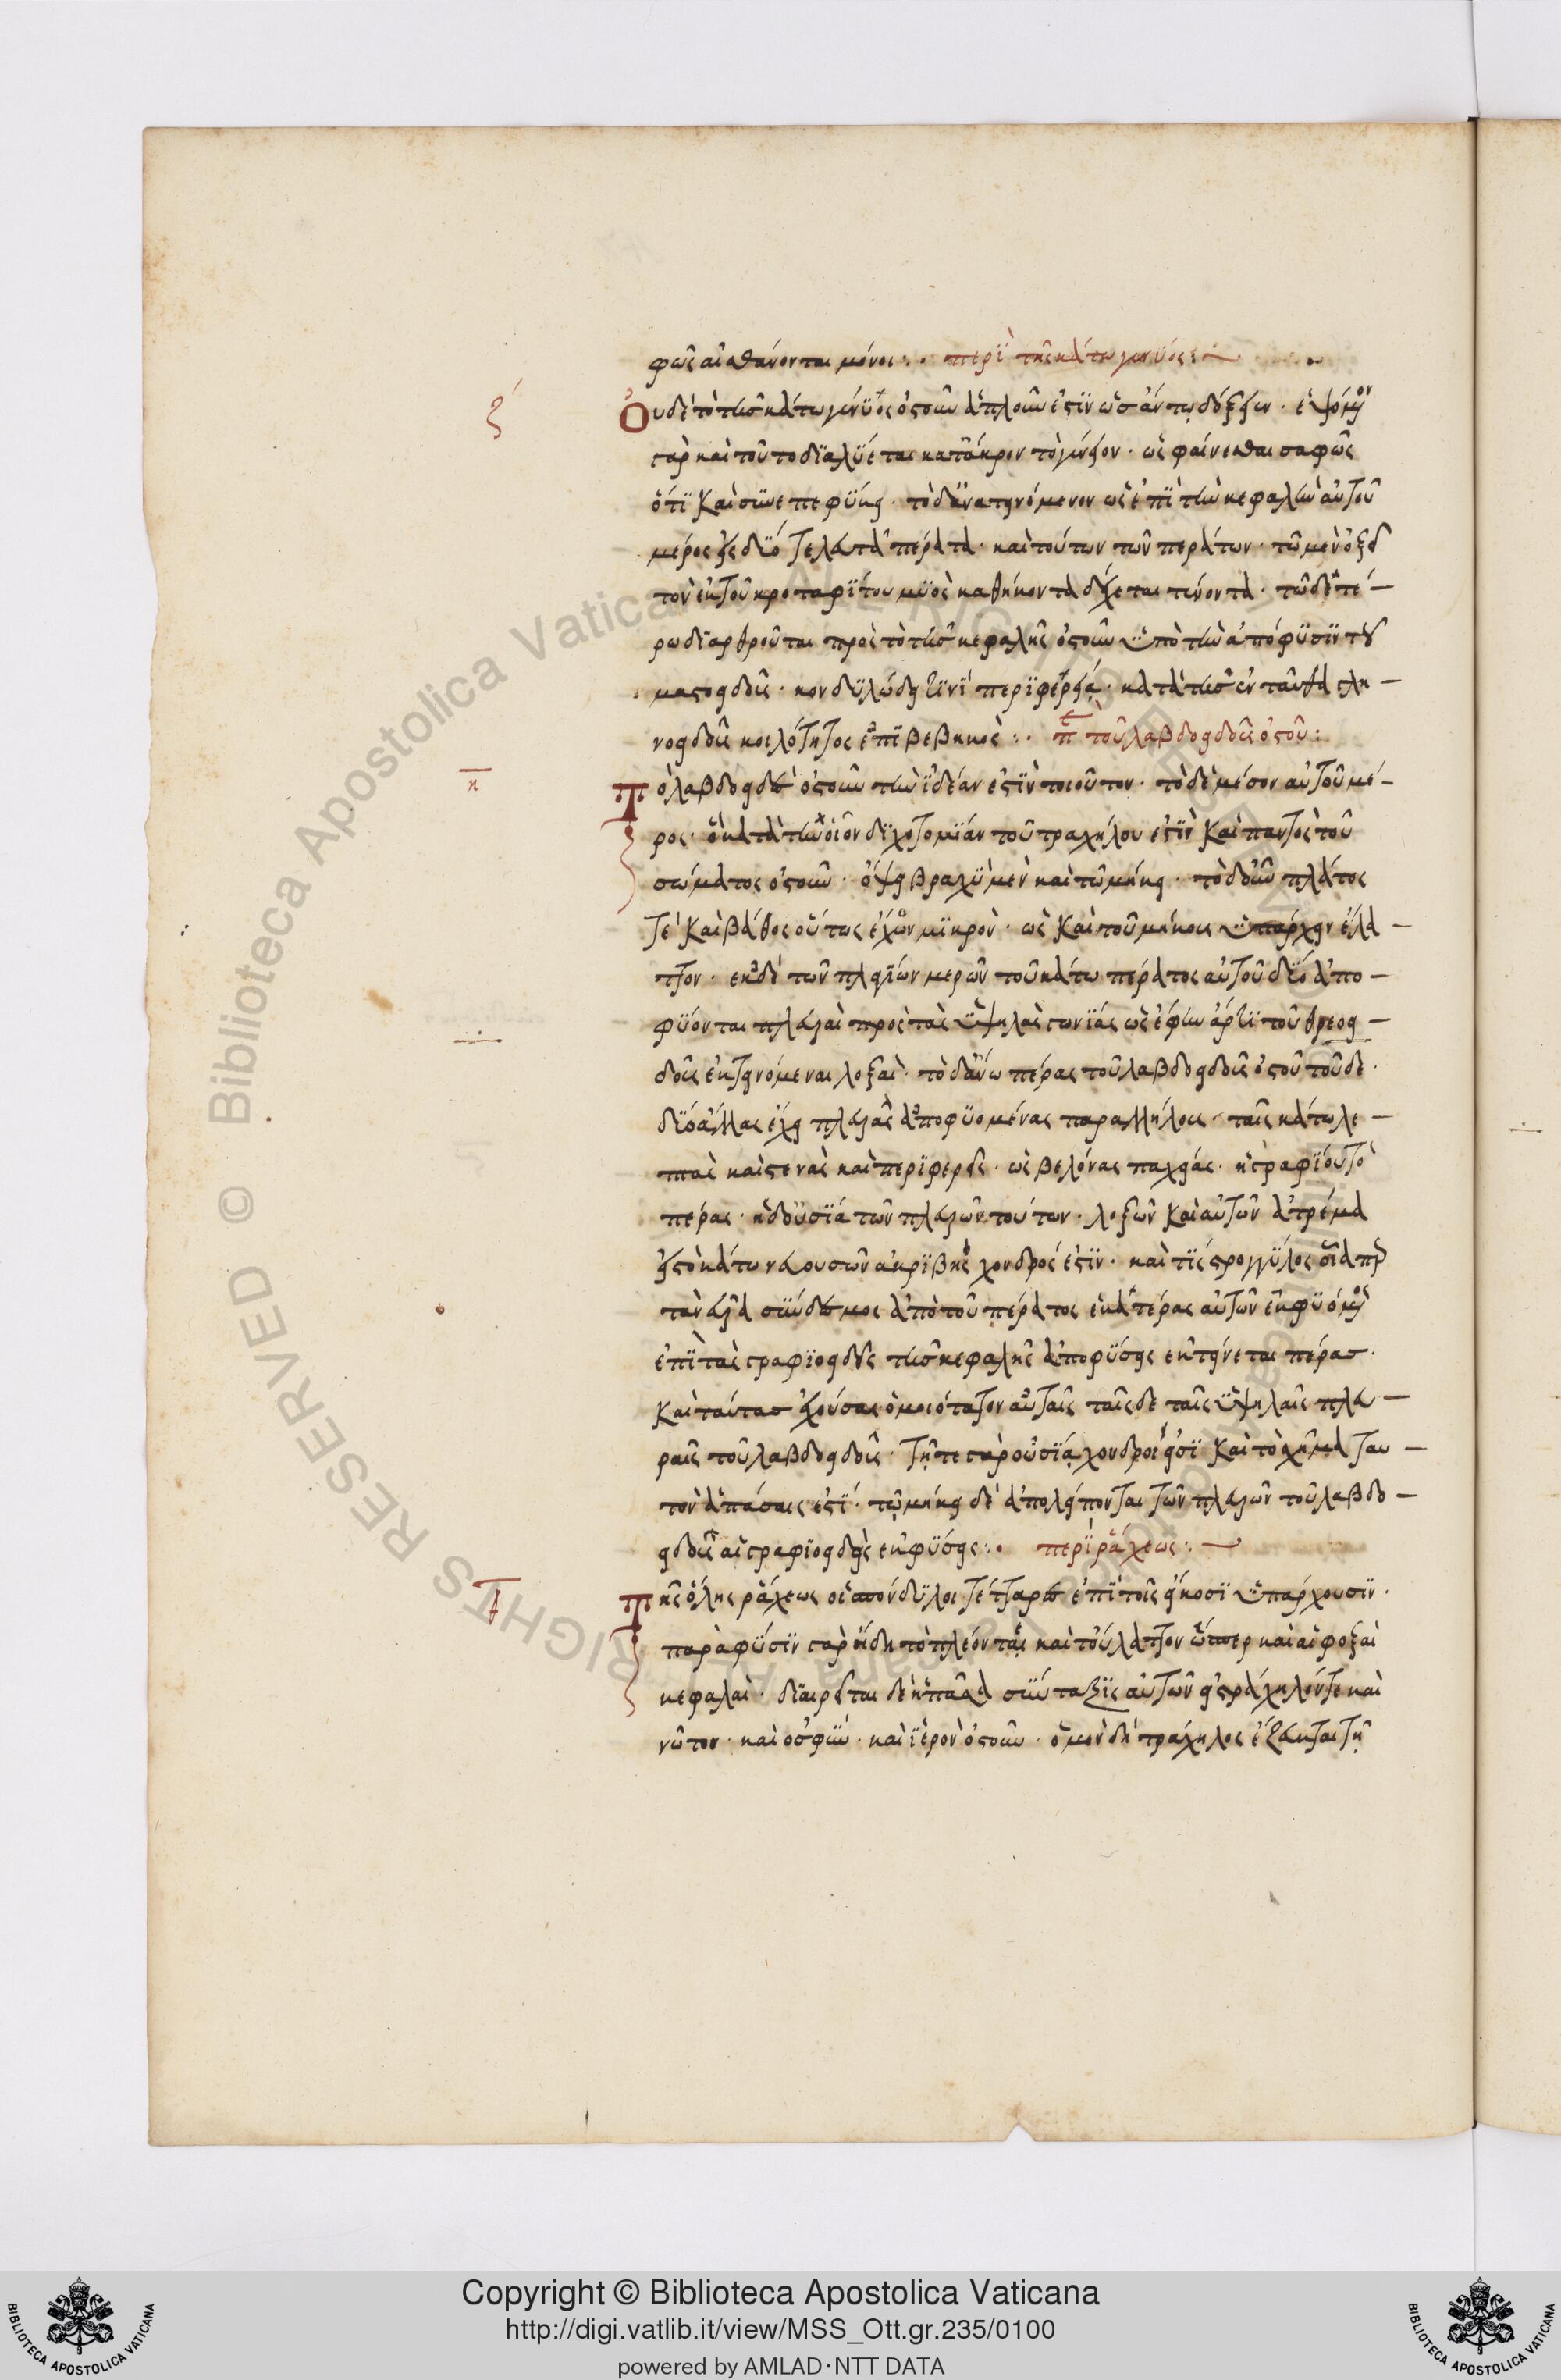 φῶς αἰσθάνονται μόνοι:. περὶ τῆς κάτω γένυος:
ζ Οὐδὲ τὸ τῆς κάτω γένϋος ὀστοῦν ἁπλοῦν ἐστϊν ὡς ἄν τῳ δόξειεν. ἑψόμενον
γὰρ καὶ τοῦτο διαλϋέται κατ' ἄκρον τὸ γένειον. ὡς φαίνεσθαι σαφῶς
ὅτϊ καὶ συνεπεφϋκει. τὸ δ' ἀνατεινόμενον ὡς ἐπϊ τὴν κεφαλὴν αὐτοῦ
μέρος εἰς δϋό τελευτᾶ πέρατα. καὶ τούτων τῶν περάτων. τῶ μὲν ὀξεῖ
τὸν ἐκ τοῦ κροταφϊτου μϋὸς καθήκοντα δέχεται τένοντα. τῶ δ' ἑτέ-
ρω διαρθροῦται πρὸς τὸ τῆς κεφαλῆς ὀστοῦν ὑπὸ τὴν ἀπόφϋσϊν τοῦ
μαστοειδοῦς. κονδϋλώδει τϊνϊ περϊφερείᾳ. κατὰ τῆς ἐνταῦθα γλη-
νοειδοῦς κοιλότητος ἐπϊβεβηκος:. περὶ τοῦ λαβδοειδοῦς ὀστοῦ:
η Τὸ λαβδοειδὲς ὀστοῦν τὴν ϊδέαν ἐστϊν τοιοῦτον. τὸ δὲ μέσον αὐτοῦ μέ-
ρος. ὃ κατὰ τὴν οἷον δϊχοτομϊάν τοῦ τραχήλου ἐστϊν καὶ παντὸς τοῦ
σώματος ὀστοῦν. ὄψει βραχϋ μὲν καὶ τῶ μήκει. τὸ δ' οὖν πλάτος
τέ καὶ βάθος οὕτως ἔχον μϊκρὸν. ὡς καὶ τοῦ μήκους ὑπάρχειν ἔλα-
ττον. ἐκ δὲ τῶν πλαγϊων μερῶν τοῦ κάτω πέρατος αὐτοῦ δϋό ἀπο-
φϋονται πλευραὶ πρὸς τὰς ὑψηλὰς γωνϊάς ὡς ἔφην ἄρτϊ τοῦ θρεοει-
δοῦς ἐκτεινόμεναι λοξαὶ. τὸ δ' ἄνω πέρας τοῦ λαβδοειδοῦς ὀστοῦ τοῦδε.
δϋό ἄλλας ἔχει πλευρὰς ἀποφϋομένας παραλλήλους. ταῖς κάτω λε-
πτὰς καὶ στενὰς καὶ περϊφερεῖς. ὡς βελόνας παχείας. ἢ γραφϊου τὸ
πέρας. ἡ δ' οὐσϊά τῶν πλευρῶν τούτων. λοξῶν καὶ αὐτῶν ἀτρέμα
εἰς τὸ κάτω νευουσῶν ἀκρϊβὴς χονδρός ἐστϊν. καὶ τϊς στρογγϋλος
σϋνδεσμος ἀπὸ τοῦ πέρατος ἑκατέρας αὐτῶν ἐκφϋόμενος
ἐπϊ τὰς γραφϊοειδεῖς τῆς κεφαλῆς ἀποφϋσεις ἐκτείνεται πέρας.
καὶ ταύτας ἐχούσας ὁμοιότατον αὐταῖς ταῖς δὲ ταῖς ὑψηλαῖς πλευ-
ραῖς τοῦ λαβδοειδοῦς. τῇ τε γὰρ οὐσϊᾳ χονδροί εἰσϊ καὶ τὸ σχῆμα ταυ-
τὸν ἁπάσαις ἐστϊ. τῷ μήκει δὲ ἀπολείπονται τῶν πλευρῶν τοῦ λαβδο-
ειδοῦς αἱ γραφϊοειδεῖς ἐκφϋσεις:. περὶ ῥάχεως:.
θ Τῆς ὅλης ῥάχεως οἱ σπόνδϋλοι τέτταρες ἐπϊ τοῖς εἴκοσϊ ὑπάρχουσϊν.
παρὰ φϋσϊν γὰρ ἤδη τὸ πλέον τὲ καὶ τοὔλαττον ὥσπερ καὶ αἱ φοξαὶ
κεφαλαὶ. δϊαιρεῖται δὲ ἡ πᾶσα σϋνταξϊς αὐτῶν εἰς τράχηλόν τε καὶ
νῶτον. καὶ ὀσφϋν. καὶ ϊερὸν ὀστοῦν. ὁ μὲν δὴ τράχηλος ἔζευκται τῇ
Copyright © Biblioteca Apostolica Vaticana
http://digi.vatlib.it/view/MSS_Ott.gr.235/0100
powered by AMLAD·NTT DATA